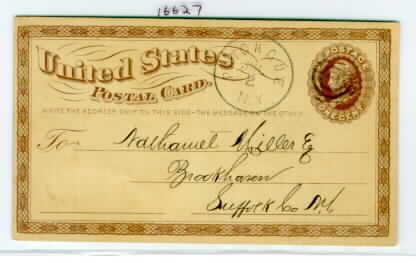 16627
United States
POSTAL CARD.
WRITE THE ADDRESS ONLY ON THIS SIDE—THE MESSAGE ON THE OTHER
U.S. POSTAGE
ONE CENT
2
N.Y.
To Nathaniel Miller E
Brookhaven
Suffolk Co N.Y.